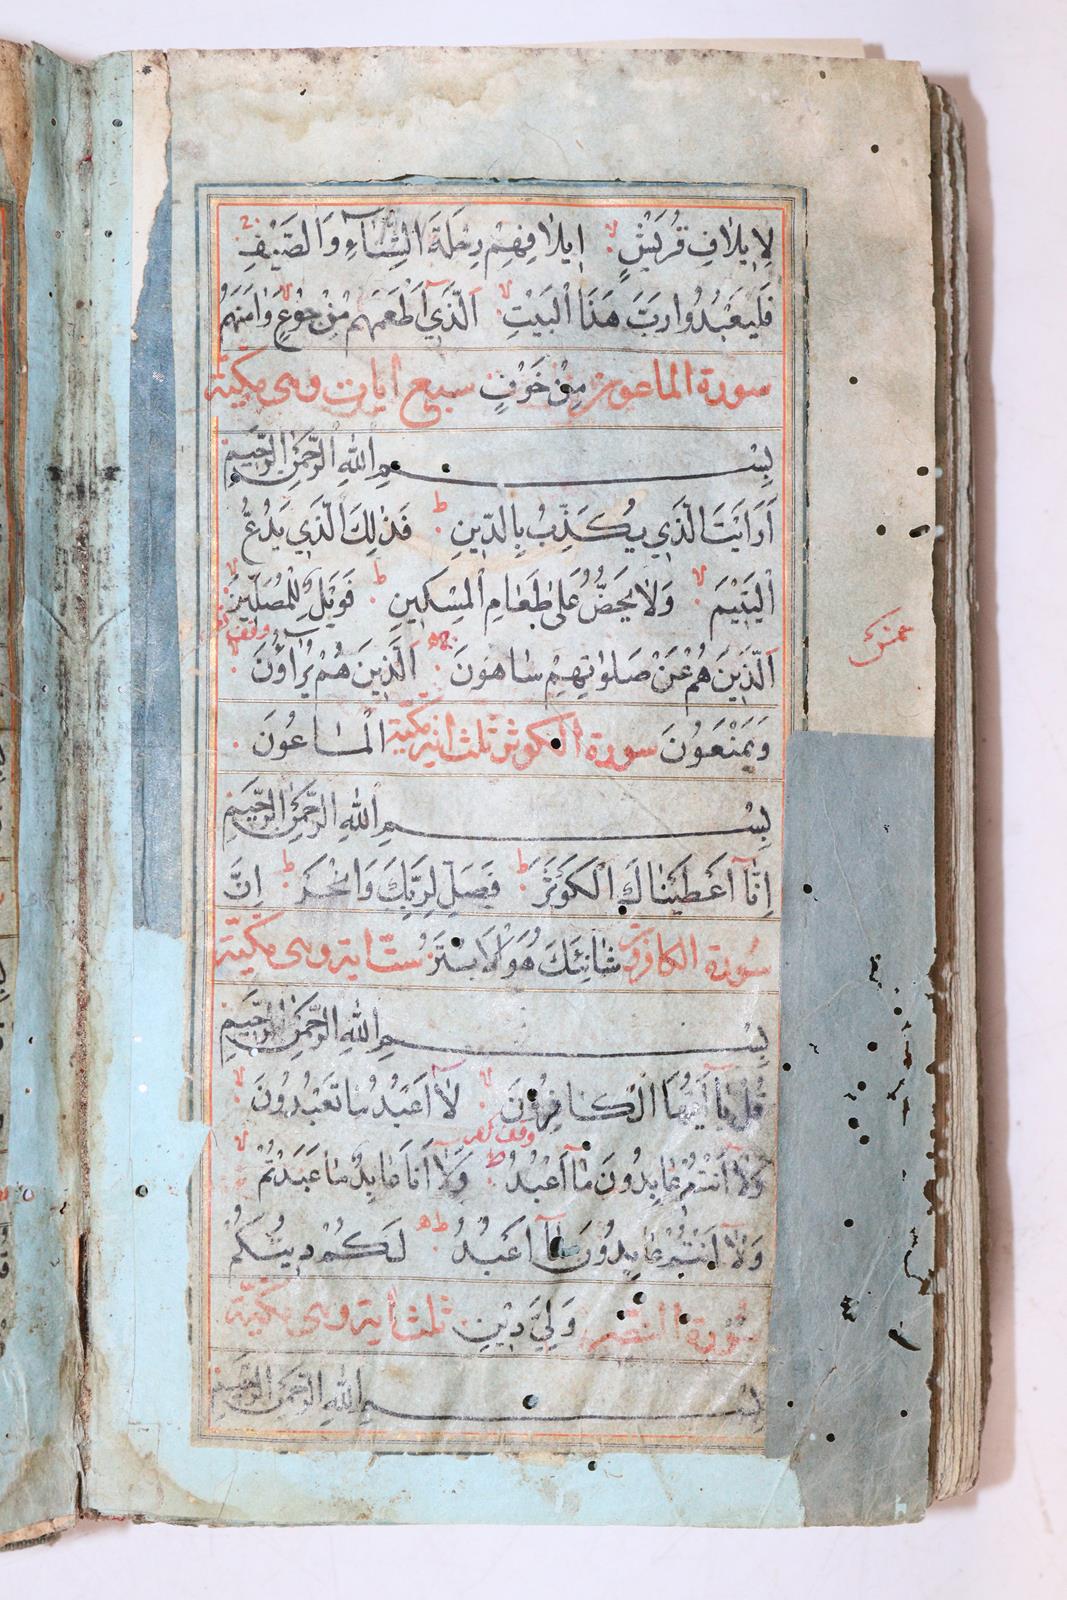 لِاِيلَافِ قُرَيْشٍ اِيلَافِهِمْ رِحْلَةَ الشِّتَآءِ وَالصَّيْفِ
فَلْيَعْبُدُوا رَبَّ هٰذَا الْبَيْتِ اَلَّذِي اَطْعَمَهُمْ مِنْ جُوْعٍ وَاٰمَنَهُمْ
سورة الماعون مِنْ خَوْفٍ سبع ايات وهى مكيّة
بِسْمِ اللهِ الرَّحْمٰنِ الرَّحِيْمِ
اَرَاَيْتَ الَّذِي يُكَذِّبُ بِالدِّينِ ط فَذٰلِكَ الَّذِي يَدُعُّ
الْيَتِيْمَ لا وَلَا يَحُضُّ عَلٰى طَعَامِ الْمِسْكِينِ ط فَوَيْلٌ لِلْمُصَلِّيْنَ لا
اَلَّذِينَ هُمْ عَنْ صَلٰوتِهِمْ سَاهُونَ اَلَّذِينَ هُمْ يُرَاؤُنَ
وَيَمْنَعُونَ سورة الكوثر ثلث اية مكيّة الْمَاعُونَ
بِسْمِ اللهِ الرَّحْمٰنِ الرَّحِيْمِ
اِنَّآ اَعْطَيْنَاكَ الْكَوْثَرَ ط فَصَلِّ لِرَبِّكَ وَانْحَرْ ط اِنَّ
سورة الكافرون شَانِئَكَ هُوَ الْاَبْتَرُ ستّ اية وهى مكيّة
بِسْمِ اللهِ الرَّحْمٰنِ الرَّحِيْمِ
قُلْ يَآ اَيُّهَا الْكَافِرُوْنَ لا لَآ اَعْبُدُ مَا تَعْبُدُوْنَ لا
وَلَآ اَنْتُمْ عَابِدُونَ مَآ اَعْبُدُ وَلَآ اَنَا عَابِدٌ مَا عَبَدْتُمْ لا
وَلَآ اَنْتُمْ عَابِدُونَ مَآ اَعْبُدُ ط لَكُمْ دِينُكُمْ
سورة النصر وَلِيَ دِيْنِ ثلث اية وهى مكيّة
بِسْمِ اللهِ الرَّحْمٰنِ الرَّحِيْمِ